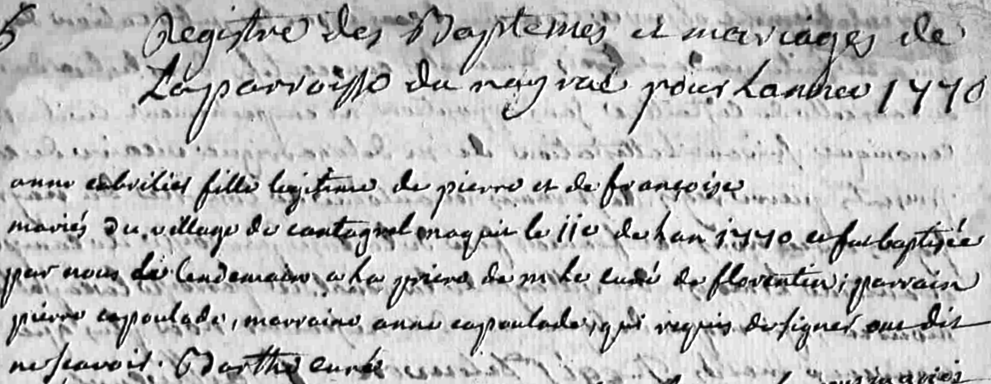 Registre des Baptemes et mariages de
La parroisse du nayrac pour Lannee 1770
anne cabrilies fille legitime de pierre et de françoise
mariés du village de cantagrel naquit le 11e de lan 1770 et fut baptisée
par nous le lendemain a la priere de mr le curé de florentin; parrain
pierre capoulade, marraine anne capoulade, qui requis de signer ont dit
ne scavoir. Barthe curé